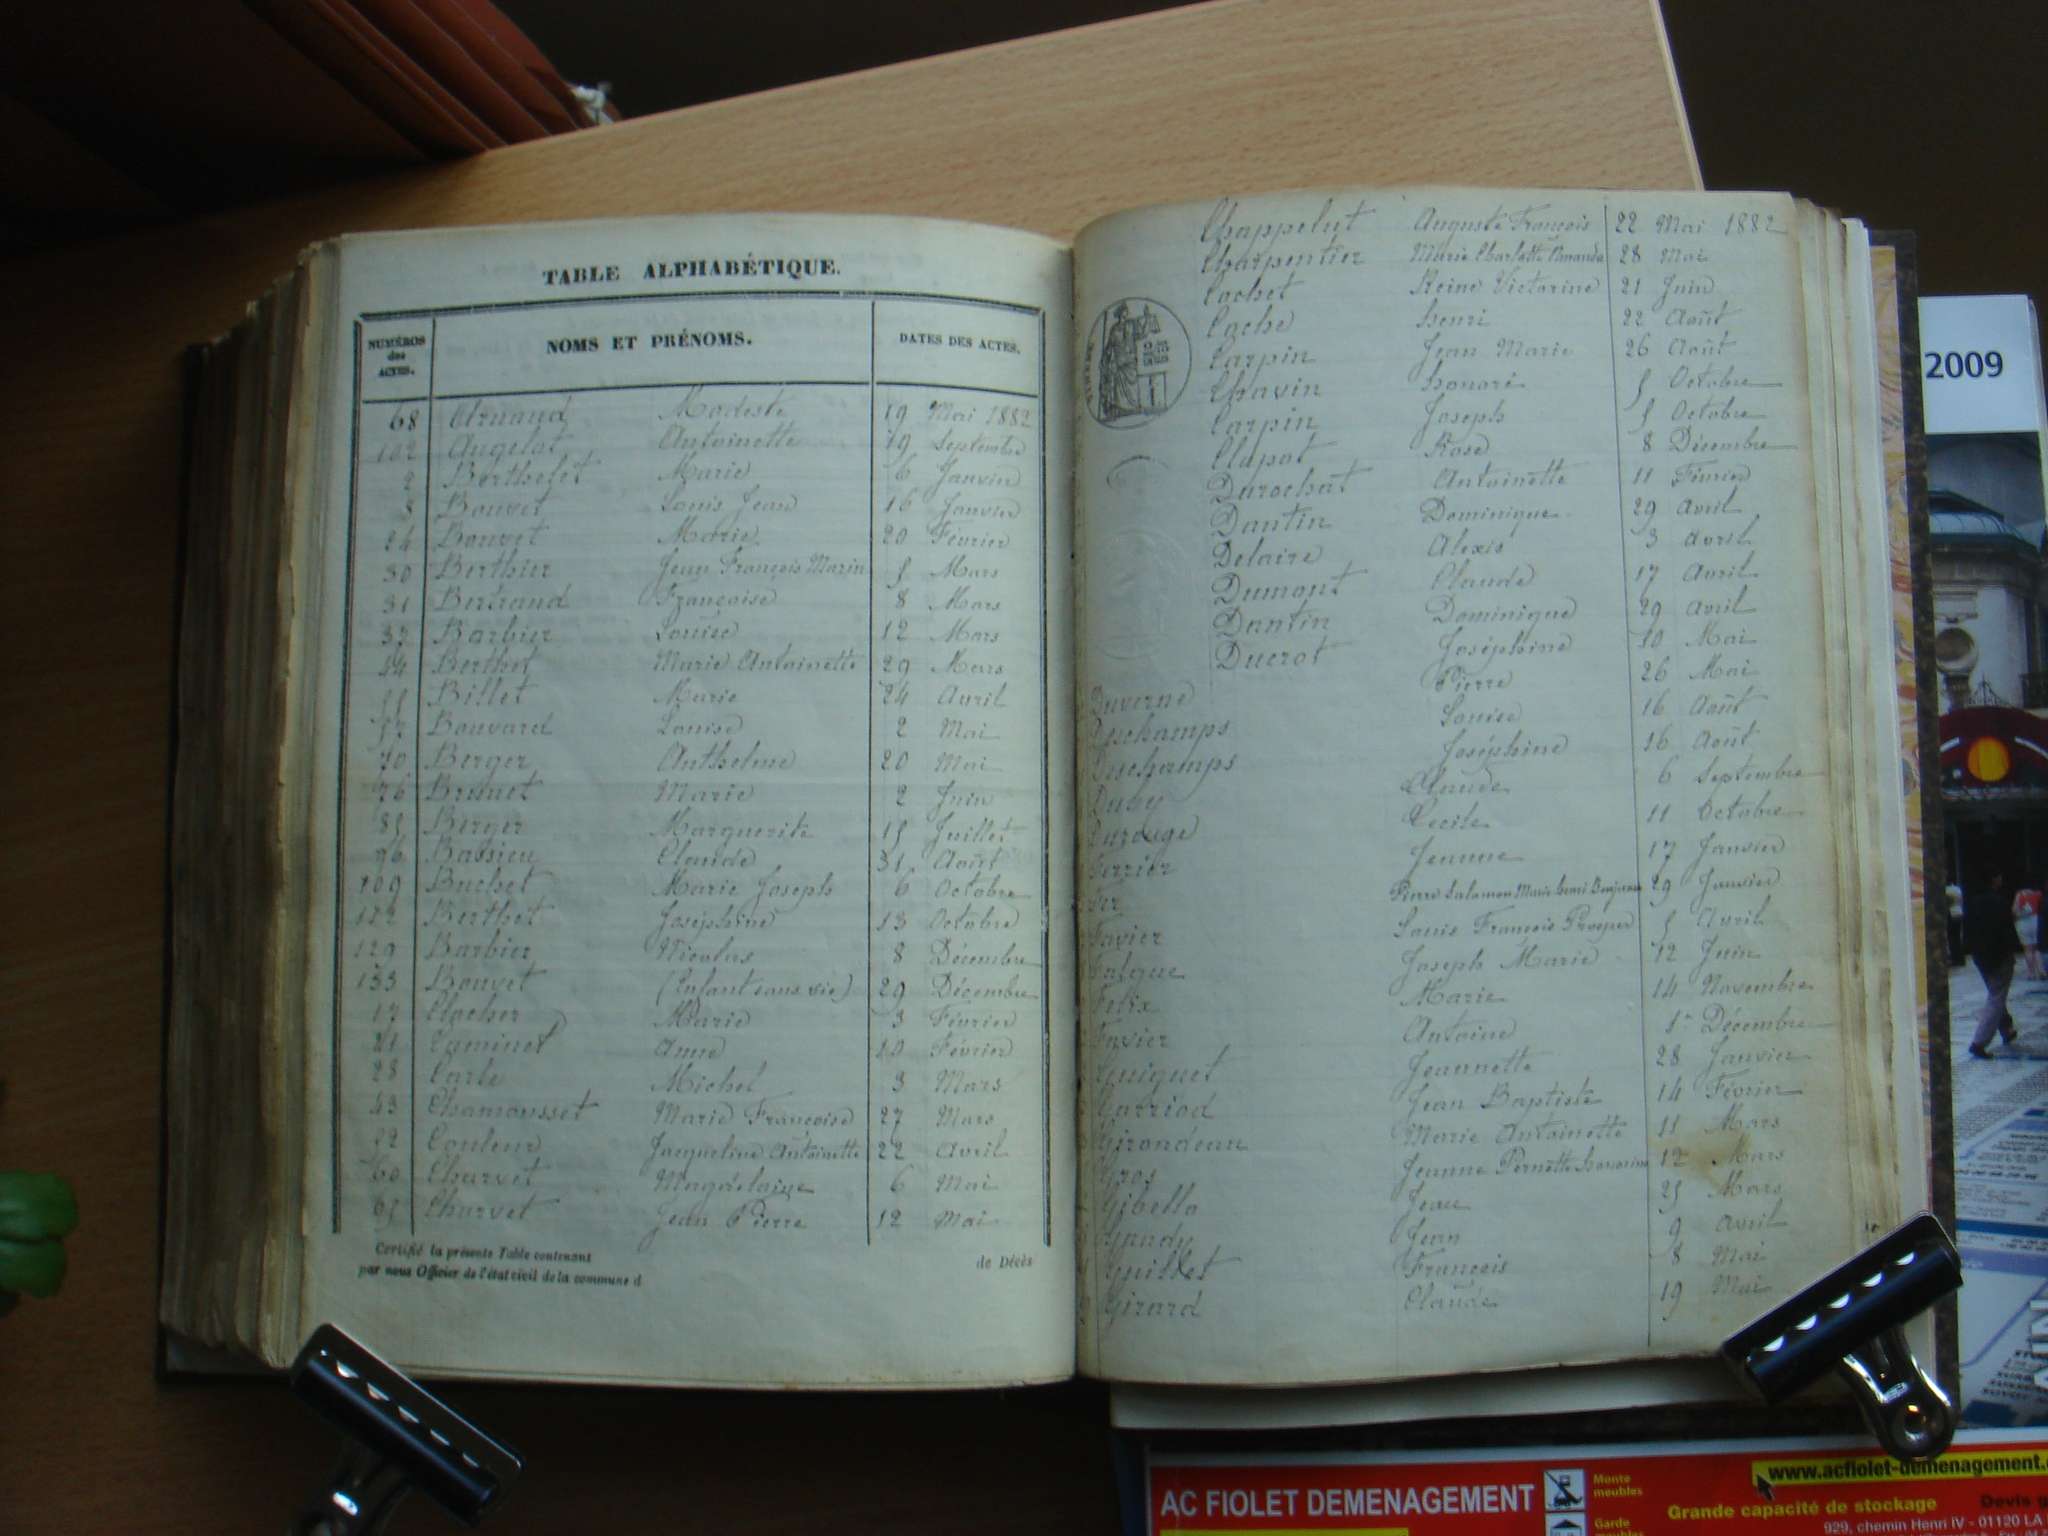 TABLE ALPHABÉTIQUE.
NUMÉROS des ACTES. NOMS ET PRÉNOMS. DATES DES ACTES.
68 Arnaud Modeste 19 Mai 1882
102 Angelot Antoinette 19 Septembre
2 Berthelet Marie 6 Janvier
Bouvet Louis Jean 16 Janvier
24 Bouvet Marie 20 Février
30 Berthier Jean François Marin 5 Mars
31 Bertrand Françoise 8 Mars
Barbier Louise 12 Mars
44 Berthet Marie Antoinette 29 Mars
Billet Marie 24 Avril
57 Bouvard Louise 2 Mai
70 Berger Anthelme 20 Mai
76 Brunet Marie 2 Juin
85 Berger Marguerite 15 Juillet
96 Bassieu Claude 31 Août
109 Buchet Marie Joseph 6 Octobre
112 Berthet Joséphine 13 Octobre
129 Barbier Nicolas 8 Décembre
133 Bouvet (Enfant sans vie) 29 Décembre
17 Clocher Marie 3 Février
21 Caminet Anne 10 Février
28 Carle Michel 3 Mars
43 Chamousset Marie Françoise 27 Mars
52 Couleur Jacqueline Antoinette 22 Avril
60 Charvet Magdelaine 6 Mai
65 Charvet Jean Pierre 12 Mai
Certifié la présente Table contenant de Décès
par nous Officier de l'état civil de la commune d
Chappelut Auguste François 22 Mai 1882
Charpentier Marie Charlotte Amanda 28 Mai
Cochet Reine Victorine 21 Juin
Cache Henri 22 Août
Carpin Jean Marie 26 Août
Chavin Honoré 5 Octobre
Carpin Joseph 5 Octobre
Clapot Rose 8 Décembre
Durochat Antoinette 11 Février
Dantin Dominique 29 Avril
Delaire Alexis 3 Avril
Dumont Claude 17 Avril
Dantin Dominique 29 Avril
Ducrot Joséphine 10 Mai
Duverne Pierre 26 Mai
Deschamps Louise 16 Août
Deschamps Joséphine 16 Août
Duby Claude 6 Septembre
Durouge Cécile 11 Octobre
Ferrier Jeanne 17 Janvier
Fer Pierre Salamon Marie Henri Benjamin 29 Janvier
Favier Louis François Prosper 5 Avril
Falque Joseph Marie 12 Juin
Felix Marie 14 Novembre
Favier Antoine 1er Décembre
Jeannette 28 Janvier
Garriod Jean Baptiste 14 Février
Girondeau Marie Antoinette 11 Mars
Gros Jeanne Pernette Honorine 12 Mars
Gibello Jean 25 Mars
Gandy Jean 9 Avril
Guillet François 8 Mai
Girard Claude 19 Mai
2009
AC FIOLET DEMENAGEMENT
Monte meubles
Garde meubles
www.acfiolet-demenagement.
Grande capacité de stockage
Devis
929, chemin Henri IV - 01120 LA